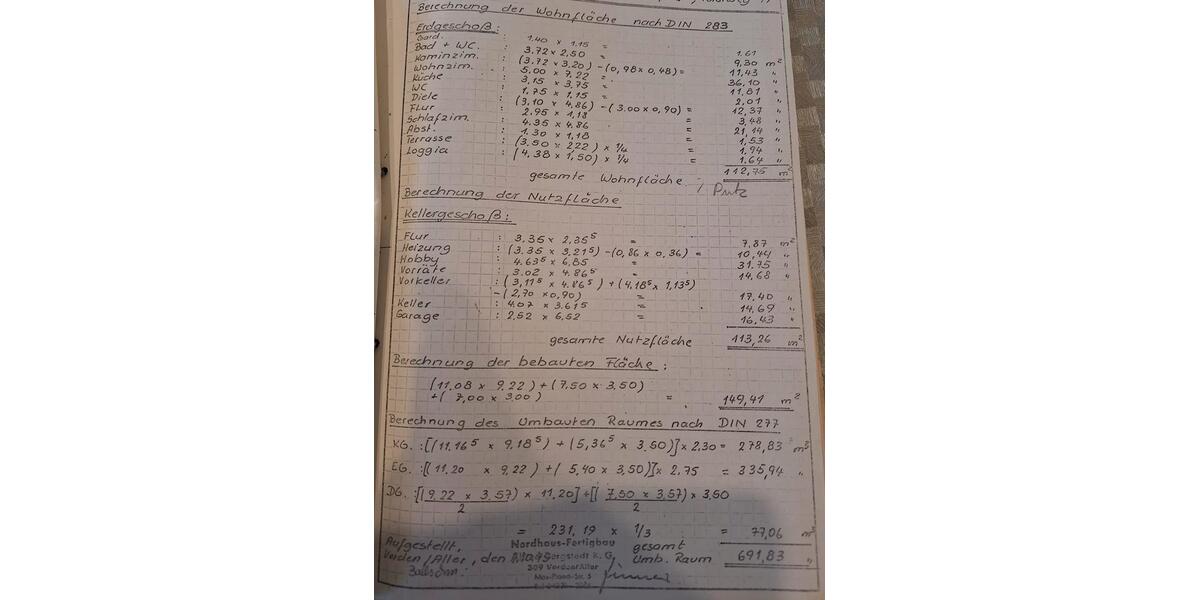 Berechnung der Wohnfläche nach DIN 283
Erdgeschoß:
Gard. : 1.40 x 1.15 = 1.61
Bad + WC. : 3.72 x 2.50 = 9,30 m²
Kaminzim. : (3.72 x 3.20) - (0,98 x 0,48) = 11,43 "
Wohnzim. : 5.00 x 7.22 = 36,10 "
Küche : 3,15 x 3.75 = 11,81 "
WC : 1.75 x 1.15 = 2,01 "
Diele : (3,10 x 4.86) - (3.00 x 0,90) = 12,37 "
Flur : 2.95 x 1,18 = 3,48 "
Schlafzim. : 4.35 x 4.86 = 21,14 "
Abst. : 1.30 x 1,18 = 1,53 "
Terrasse : (3.50 x 2.22) x 1/4 = 1,94 "
Loggia : (4.38 x 1,50) x 1/4 = 1,64 "
gesamte Wohnfläche 112,75 m²
/ Putz
Berechnung der Nutzfläche
Kellergeschoß:
Flur : 3.35 x 2,35⁵ = 7,87 m²
Heizung : (3.35 x 3,21⁵) - (0,86 x 0,36) = 10,44 "
Hobby : 4.63⁵ x 6,85 = 31.75 "
Vorräte : 3.02 x 4.86⁵ = 14,68 "
Vorkeller : (3,11⁵ x 4.86⁵) + (4,18⁵ x 1,13⁵)
- (2,70 x 0,90) = 17,40 "
Keller : 4.07 x 3.61⁵ = 14,69 "
Garage : 2,52 x 6,52 = 16,43 "
gesamte Nutzfläche 113,26 m²
Berechnung der bebauten Fläche:
(11.08 x 9.22) + (7,50 x 3,50)
+ ( 7,00 x 3,00 ) = 149,41 m²
Berechnung des Umbauten Raumes nach DIN 277
KG. : [(11.16⁵ x 9,18⁵) + (5,36⁵ x 3.50)] x 2.30 = 278,83 m³
EG. : [(11.20 x 9,22) + (5,40 x 3,50)] x 2.75 = 335,94 "
DG. : [(9,22 x 3,57) x 11.20] + [(7,50 x 3,57) x 3,50
2 2
= 231,19 x 1/3 = 77,06 m³
Aufgestellt, gesamt
Verden/Aller, den Umb. Raum 691,83 "
Nordhaus-Fertigbau
Bergstedt K.G.
309 Verden/Aller